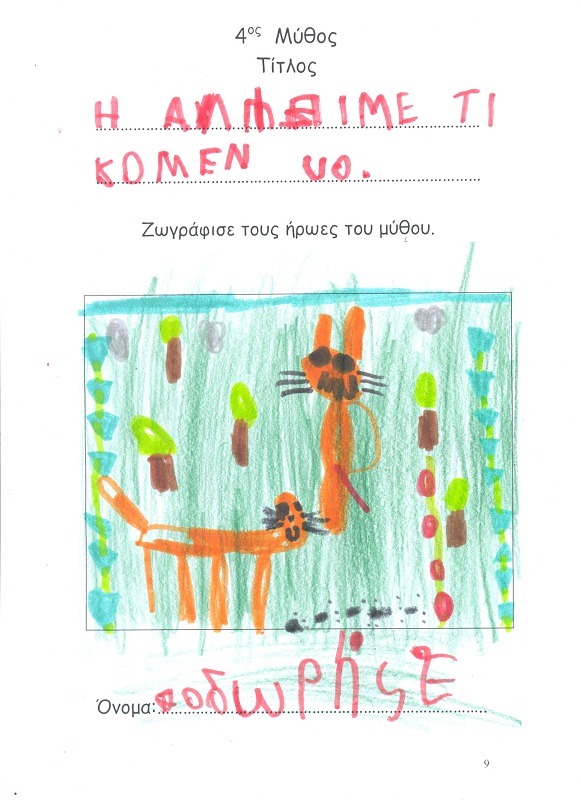 4ος Μύθος
Τίτλος
Η ΙΜΕ ΤΙ
ΚΟΜΕΝ υο.
Ζωγράφισε τους ήρωες του μύθου.
Όνομα:
9